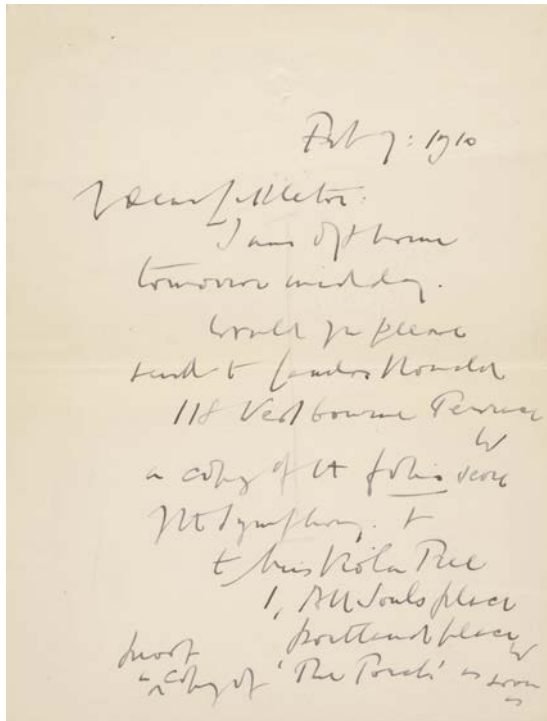 Feb 7: 1910
Dear Littleton.
I am off home
tomorrow midday.
Would you please
send to Landon Ronald
118 Westbourne Terrace
W
a copy of the folio score
of the Symphony. &
to Miss Viola Tree
1, All Souls place
Portland place
W
proof
a copy of 'The Torch' as soon
as